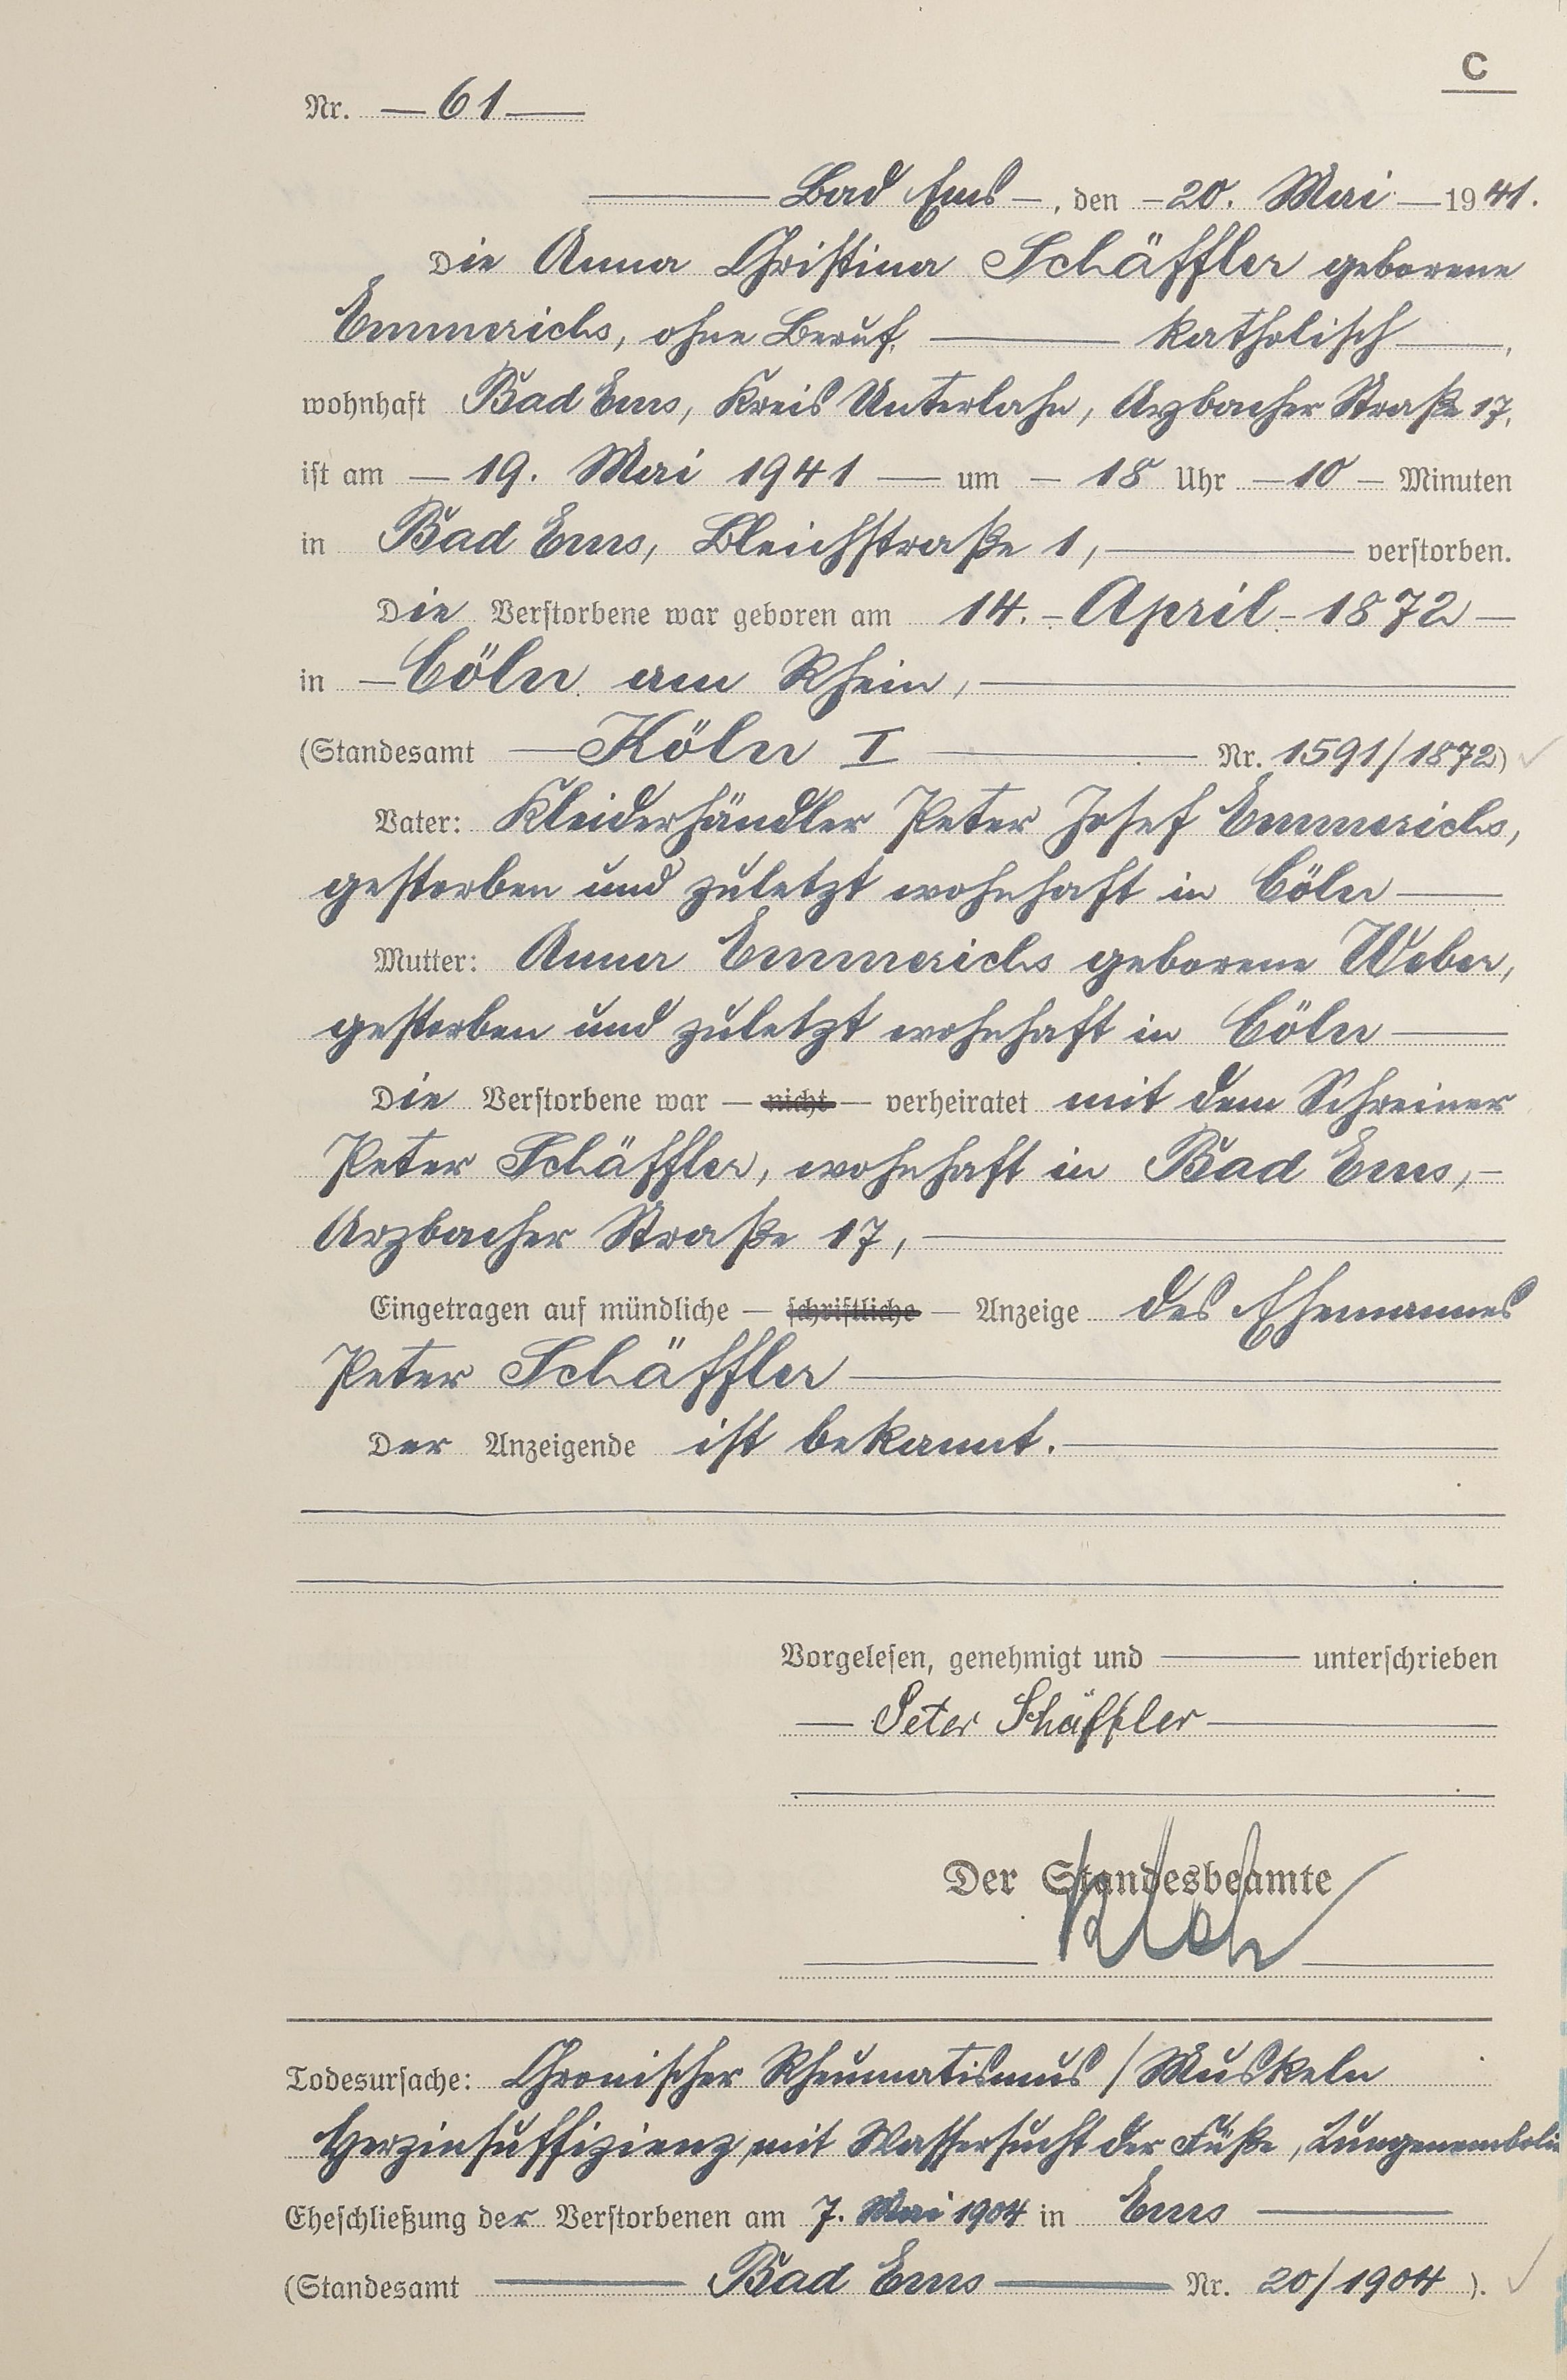 C
Nr. — 61 —
— Bad Ems —, den — 20. Mai — 1941.
Die Anna Christina Schäffler geborene
Emmerichs, ohne Beruf, — katholisch —,
wohnhaft Bad Ems, Kreis Unterlahn, Arzbacher Straße 17,
ist am — 19. Mai 1941 — um — 18 Uhr — 10 — Minuten
in Bad Ems, Bleichstraße 1, — verstorben.
Die Verstorbene war geboren am 14. - April - 1872 —
in — Cöln am Rhein, —
(Standesamt — Köln I — Nr. 1591/1872)
Vater: Kleiderhändler Peter Josef Emmerichs,
gestorben und zuletzt wohnhaft in Cöln —
Mutter: Anna Emmerichs geborene Weber,
gestorben und zuletzt wohnhaft in Cöln —
Die Verstorbene war — nicht — verheiratet mit dem Schreiner
Peter Schäffler, wohnhaft in Bad Ems, —
Arzbacher Straße 17, —
Eingetragen auf mündliche — schriftliche — Anzeige des Ehemannes
Peter Schäffler —
Der Anzeigende ist bekannt. —
Vorgelesen, genehmigt und — unterschrieben
— Peter Schäffler —
Der Standesbeamte
Todesursache: Chronischer Rheumatismus / Muskeln
Herzinsuffizienz, mit Wassersucht der Füße, Lungenembolie
Eheschließung der Verstorbenen am 7. Mai 1904 in Ems —
(Standesamt — Bad Ems — Nr. 20/1904 ).